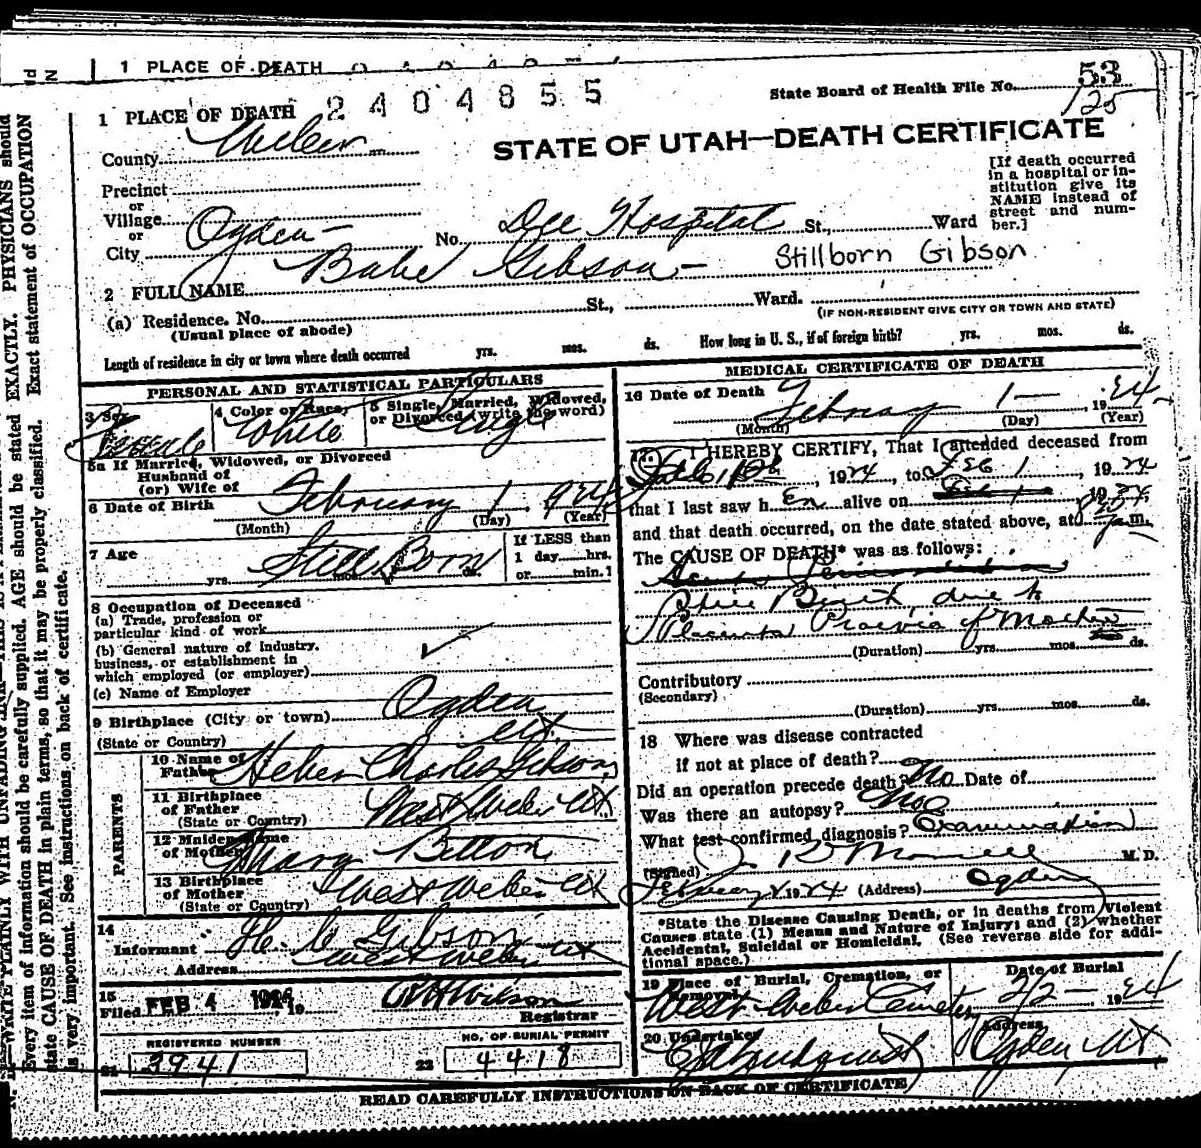 1 PLACE OF DEATH
1 PLACE OF DEATH 2404855
State Board of Health File No. 53
125
County Weber
STATE OF UTAH—DEATH CERTIFICATE
[If death occurred
in a hospital or in-
stitution give its
NAME instead of
street and num-
ber.]
Precinct
or
Village
or
City Ogden — No. Dee Hospital St., Ward
2 FULL NAME Babe Gibson — Stillborn Gibson
(a) Residence. No. St., Ward.
(Usual place of abode) (IF NON-RESIDENT GIVE CITY OR TOWN AND STATE)
Length of residence in city or town where death occurred yrs. mos. ds. How long in U. S., if of foreign birth? yrs. mos. ds.
PERSONAL AND STATISTICAL PARTICULARS
3 Sex Female
4 Color or Race White
5 Single, Married, Widowed,
or Divorced (write the word) Single
5a If Married, Widowed, or Divorced
Husband of
(or) Wife of
6 Date of Birth February 1, 1924
(Month) (Day) (Year)
7 Age Still Born
yrs. mos. ds.
If LESS than
1 day hrs.
or min.]
8 Occupation of Deceased
(a) Trade, profession or
particular kind of work
(b) General nature of industry,
business, or establishment in
which employed (or employer)
(c) Name of Employer
9 Birthplace (City or town) Ogden
(State or Country) Ut.
PARENTS
10 Name of
Father Heber Charles Gibson
11 Birthplace
of Father West Weber Ut
(State or Country)
12 Maiden Name
of Mother Mary Bitton
13 Birthplace
of Mother West Weber Ut
(State or Country)
14
Informant H. C. Gibson
Address West Weber Ut
15
Filed FEB 4 1924, 19
Registrar
REGISTERED NUMBER
21 3941
NO. OF BURIAL PERMIT
22 4418
MEDICAL CERTIFICATE OF DEATH
16 Date of Death February 1 — 1924
(Month) (Day) (Year)
17. I HEREBY CERTIFY, That I attended deceased from
Feb 1, 1924, to Feb 1, 1924
that I last saw h er alive on Feb 1, 1924
and that death occurred, on the date stated above, at m.
The CAUSE OF DEATH* was as follows:
Birth, due to
Placenta Praevia of Mother
(Duration) yrs. mos. ds.
Contributory
(Secondary)
(Duration) yrs. mos. ds.
18 Where was disease contracted
if not at place of death?
Did an operation precede death? No Date of
Was there an autopsy? No
What test confirmed diagnosis? Examination
(Signed) M. D.
February 1924 (Address) Ogden
*State the Disease Causing Death, or in deaths from Violent
Causes state (1) Means and Nature of Injury; and (2) whether
Accidental, Suicidal or Homicidal. (See reverse side for addi-
tional space.)
19 Place of Burial, Cremation, or
Removal West Weber Cemetery
Date of Burial
2/2 — 1924
20 Undertaker
Address
Ogden Ut
READ CAREFULLY INSTRUCTIONS ON BACK OF CERTIFICATE
Every item of information should be carefully supplied. AGE should be stated EXACTLY. PHYSICIANS should
state CAUSE OF DEATH in plain terms, so that it may be properly classified. Exact statement of OCCUPATION
is very important. See instructions on back of certificate.